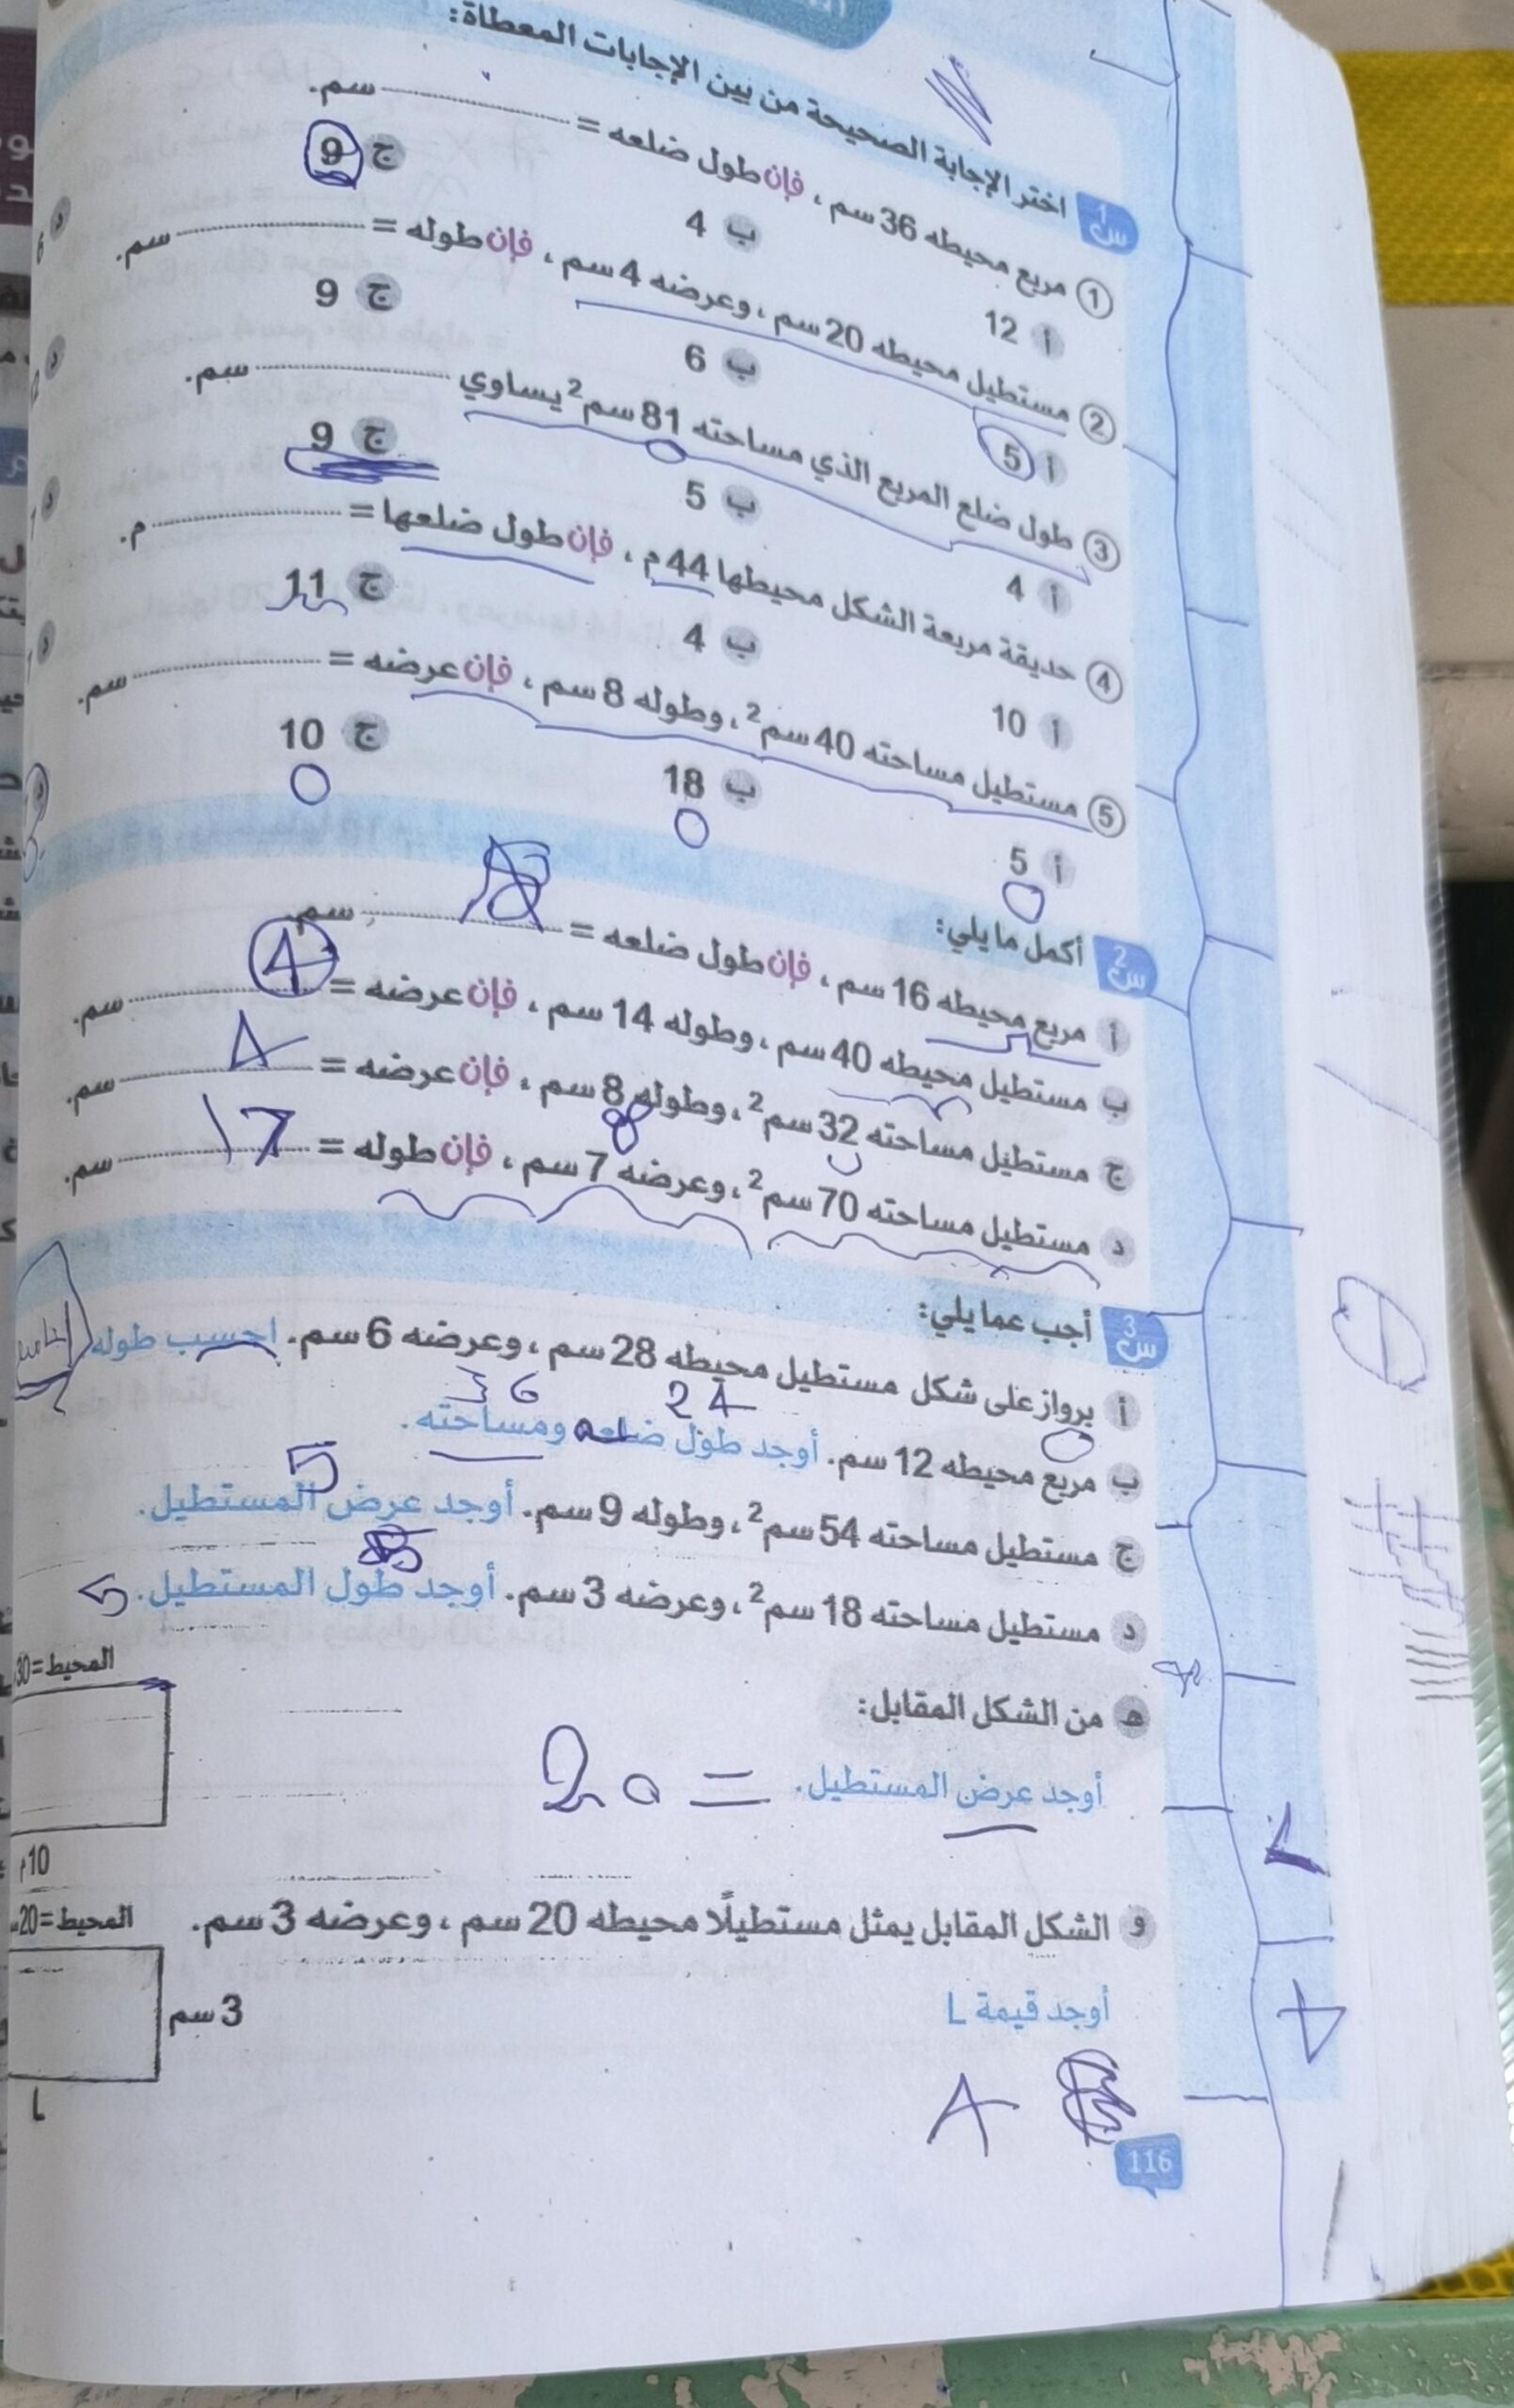 س1 اختر الإجابة الصحيحة من بين الإجابات المعطاة:
1 مربع محيطه 36 سم ، فإن طول ضلعه = .......... سم.
أ 12 ب 4 ج 9 د 6
2 مستطيل محيطه 20 سم ، وعرضه 4 سم ، فإن طوله = .......... سم.
أ 5 ب 6 ج 9 د
3 طول ضلع المربع الذي مساحته 81 سم² يساوي .......... سم.
أ 4 ب 5 ج 9 د
4 حديقة مربعة الشكل محيطها 44 م ، فإن طول ضلعها = .......... م.
أ 10 ب 4 ج 11 د
5 مستطيل مساحته 40 سم² ، وطوله 8 سم ، فإن عرضه = .......... سم.
أ 5 ب 18 ج 10
س2 أكمل ما يلي:
أ مربع محيطه 16 سم ، فإن طول ضلعه = .......... سم
ب مستطيل محيطه 40 سم ، وطوله 14 سم ، فإن عرضه = 4 سم.
ج مستطيل مساحته 32 سم² ، وطوله 8 سم ، فإن عرضه = .......... سم.
8
د مستطيل مساحته 70 سم² ، وعرضه 7 سم ، فإن طوله = 17 سم.
س3 أجب عما يلي:
أ برواز على شكل مستطيل محيطه 28 سم ، وعرضه 6 سم. احسب طوله
24 36
ب مربع محيطه 12 سم. أوجد طول ضلعه ومساحته.
5
ج مستطيل مساحته 54 سم² ، وطوله 9 سم. أوجد عرض المستطيل.
د مستطيل مساحته 18 سم² ، وعرضه 3 سم. أوجد طول المستطيل. 5
المحيط = 30
هـ من الشكل المقابل:
أوجد عرض المستطيل. = 20
10 م
المحيط = 20
و الشكل المقابل يمثل مستطيلًا محيطه 20 سم ، وعرضه 3 سم.
3 سم
أوجد قيمة L
L
116